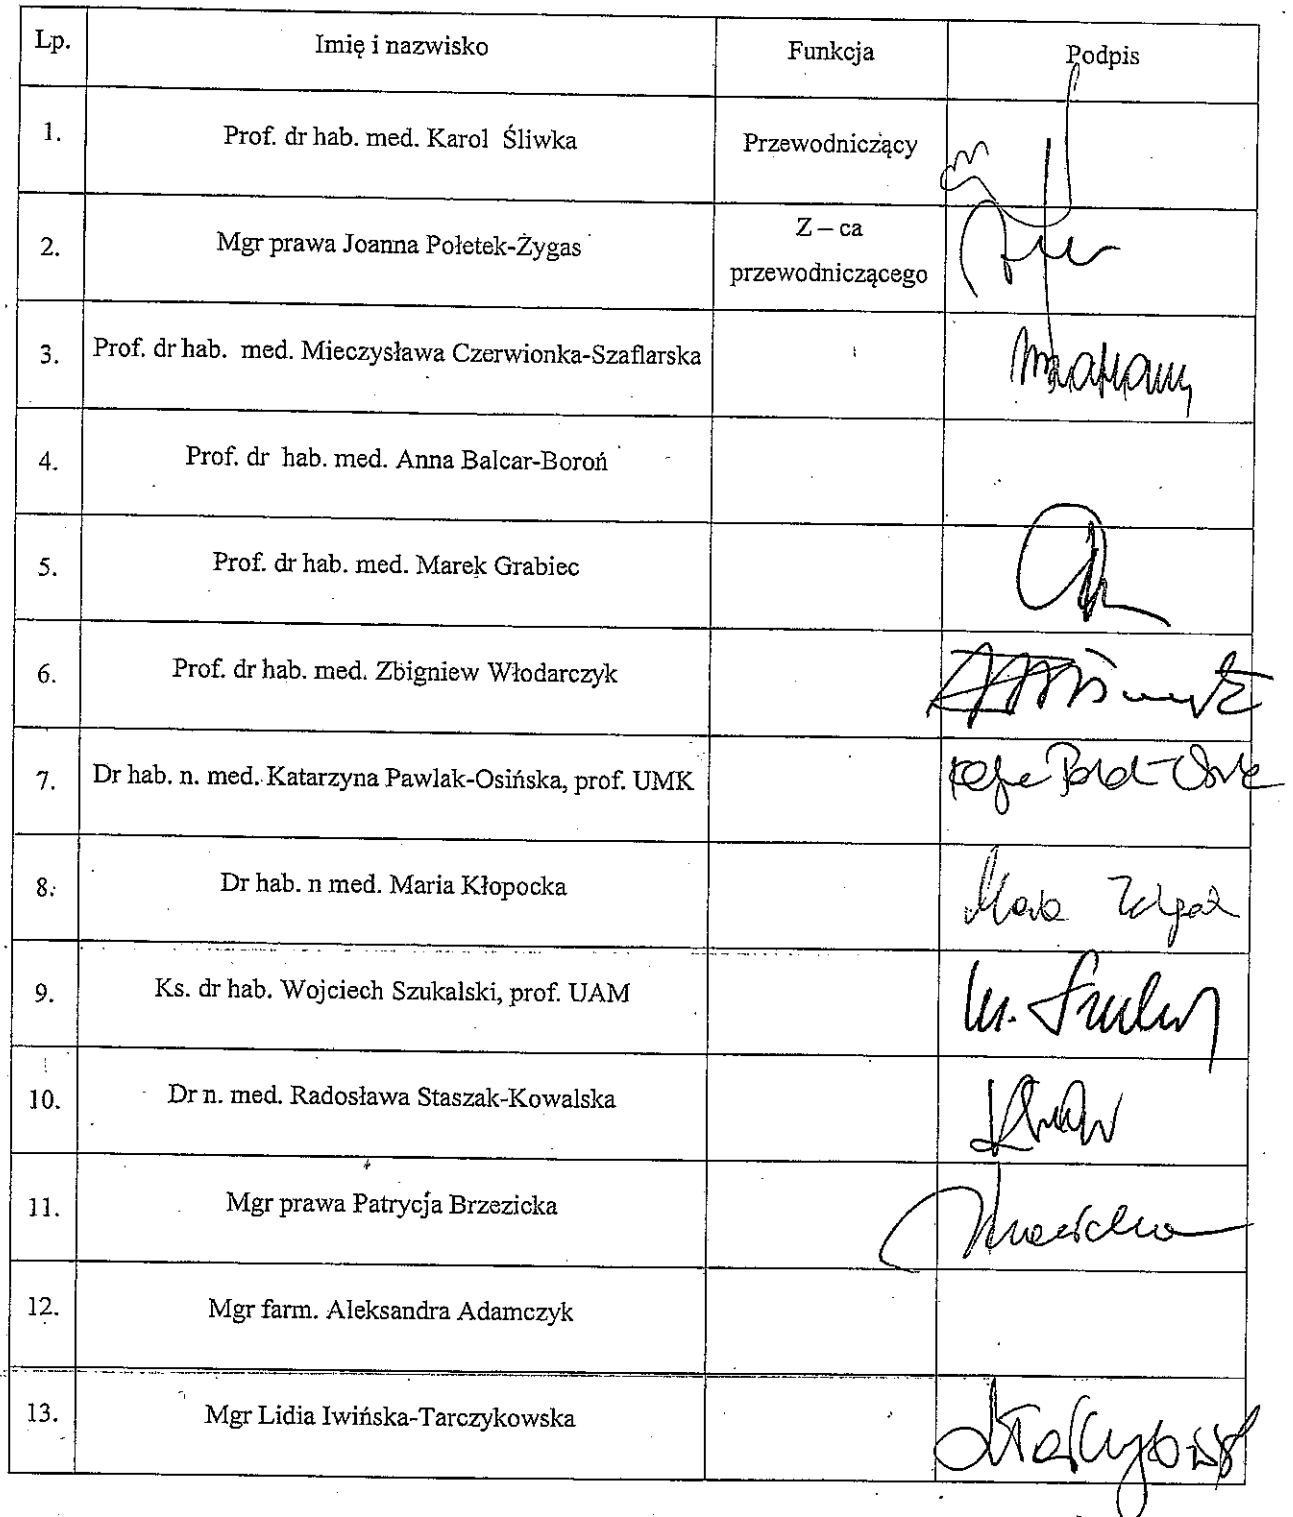 Lp. Imię i nazwisko Funkcja Podpis
1. Prof. dr hab. med. Karol Śliwka Przewodniczący
2. Mgr prawa Joanna Połetek-Żygas Z – ca
przewodniczącego
3. Prof. dr hab. med. Mieczysława Czerwionka-Szaflarska
4. Prof. dr hab. med. Anna Balcar-Boroń
5. Prof. dr hab. med. Marek Grabiec
6. Prof. dr hab. med. Zbigniew Włodarczyk
7. Dr hab. n. med. Katarzyna Pawlak-Osińska, prof. UMK
8. Dr hab. n med. Maria Kłopocka
9. Ks. dr hab. Wojciech Szukalski, prof. UAM
10. Dr n. med. Radosława Staszak-Kowalska
11. Mgr prawa Patrycja Brzezicka
12. Mgr farm. Aleksandra Adamczyk
13. Mgr Lidia Iwińska-Tarczykowska